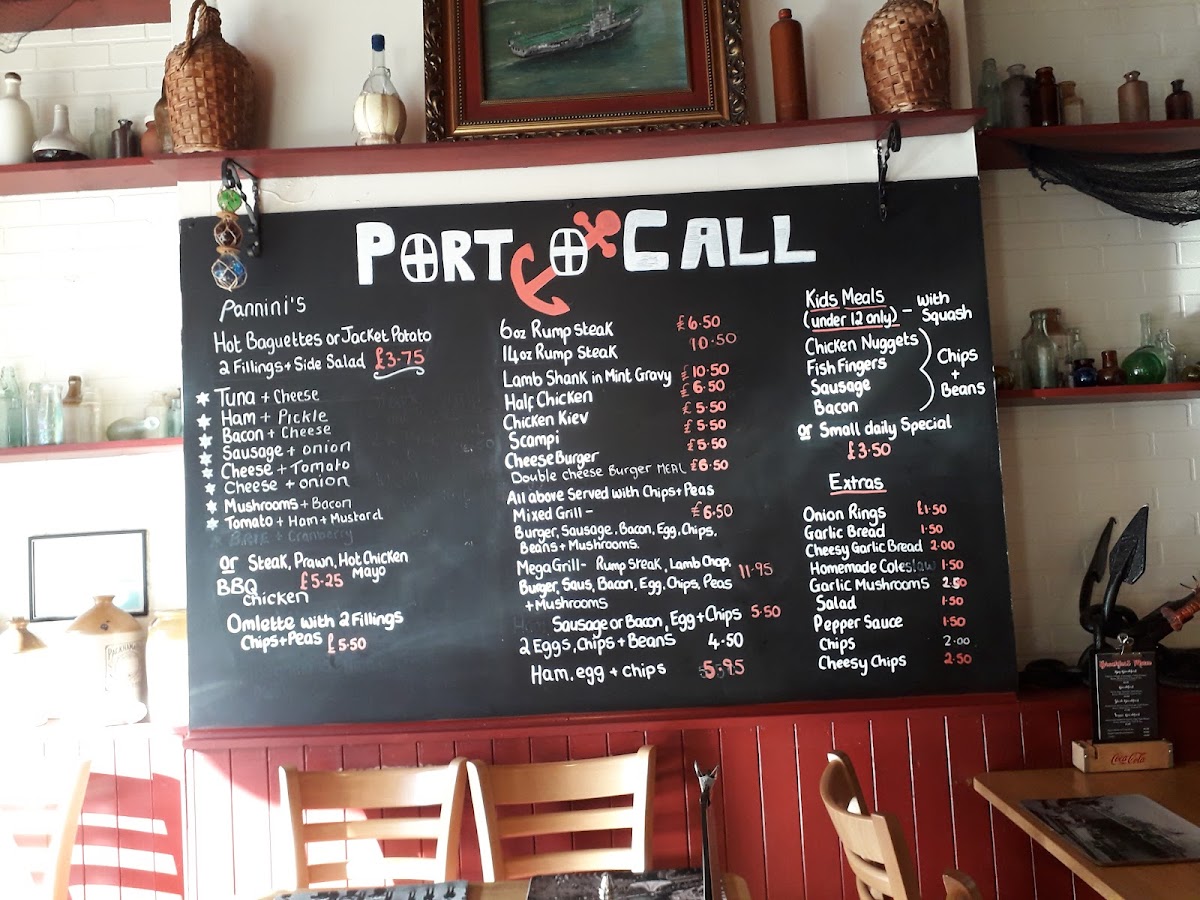 PORT O CALL
Pannini's
Hot Baguettes or Jacket Potato
2 Fillings + Side Salad £3.75
Tuna + Cheese
Ham + Pickle
Bacon + Cheese
Sausage + onion
Cheese + Tomato
Cheese + onion
Mushrooms + Bacon
Tomato + Ham + Mustard
BRIE + Cranberry
or Steak, Prawn, Hot Chicken
BBQ £5.25 Mayo
Chicken
Omlette with 2 Fillings
Chips + Peas £5.50
6oz Rump steak £6.50
14oz Rump Steak 10.50
Lamb Shank in Mint Gravy £10.50
Half Chicken £6.50
Chicken Kiev £5.50
Scampi £5.50
Cheese Burger £5.50
Double cheese Burger MEAL £6.50
All above Served with Chips + Peas
Mixed Grill - £6.50
Burger, Sausage, Bacon, Egg, Chips,
Beans + Mushrooms.
Mega Grill - Rump Steak, Lamb Chop, 11.95
Burger, Saus, Bacon, Egg, Chips, Peas
+ Mushrooms
Sausage or Bacon, Egg + Chips 5.50
2 Eggs, Chips + Beans 4.50
Ham, egg + chips 5.95
Kids Meals
(under 12 only) - With
Squash
Chicken Nuggets
Fish Fingers
Sausage
Bacon
Chips
+
Beans
or Small daily Special
£3.50
Extras
Onion Rings £1.50
Garlic Bread 1.50
Cheesy Garlic Bread 2.00
Homemade Coleslaw 1.50
Garlic Mushrooms 2.50
Salad 1.50
Pepper Sauce 1.50
Chips 2.00
Cheesy Chips 2.50
Breakfast Menu
Coca-Cola